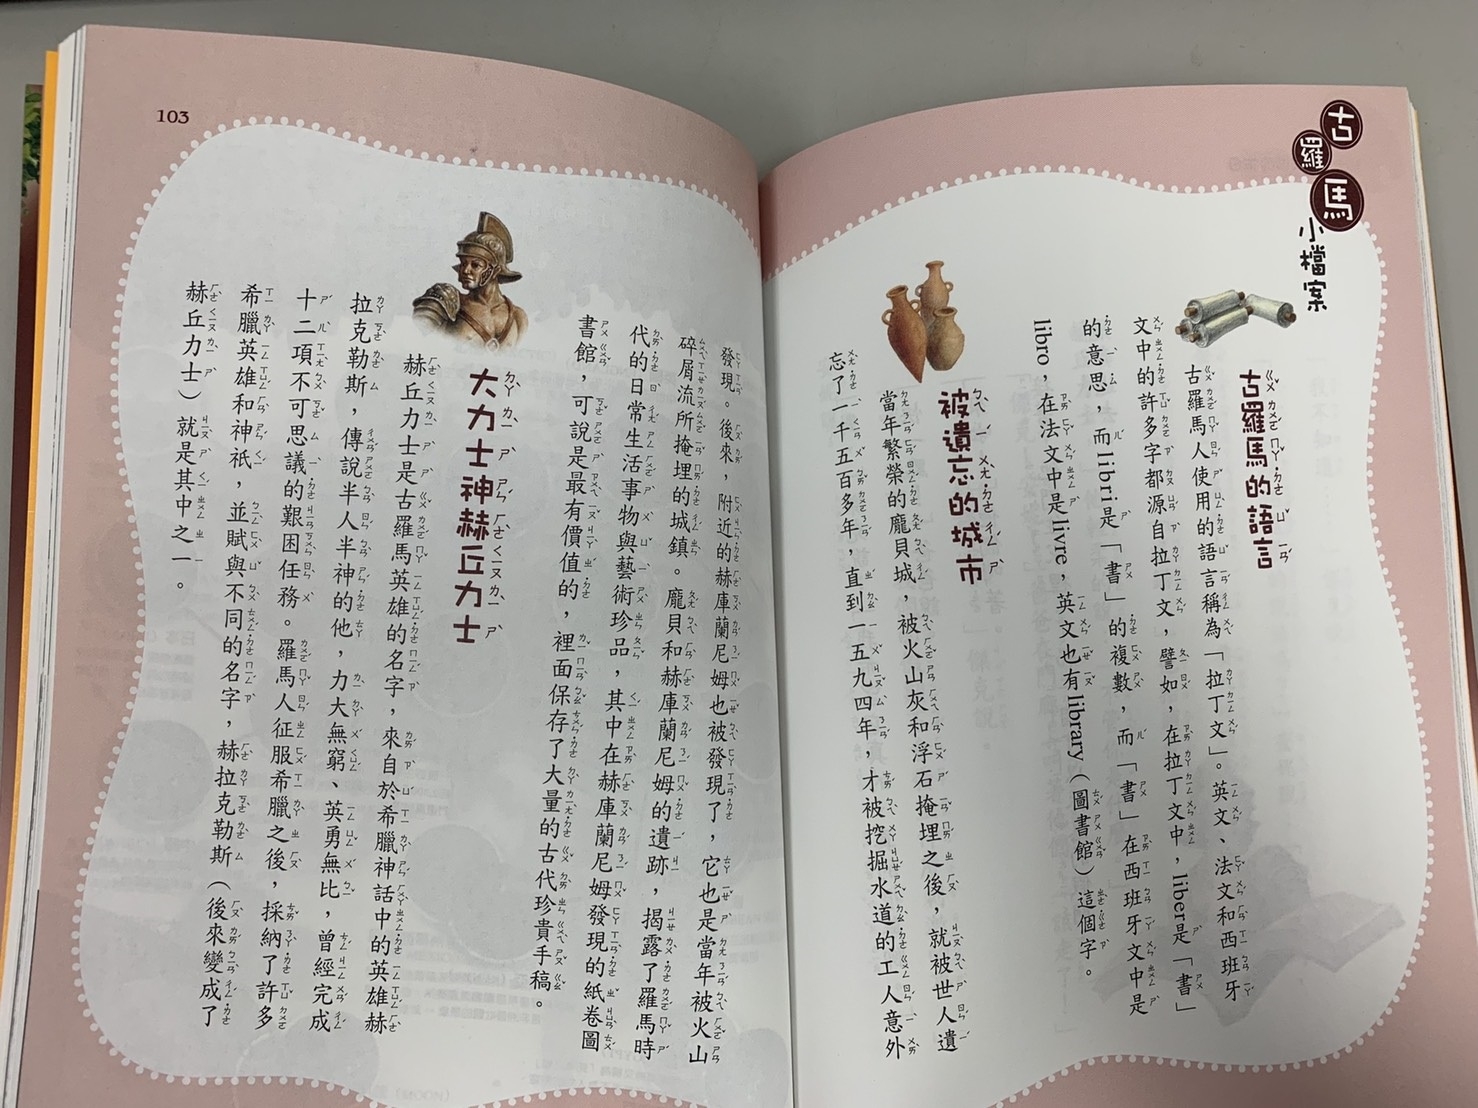 古羅馬小檔案
古羅馬的語言
古羅馬人使用的語言稱為「拉丁文」。英文、法文和西班牙
文中的許多字都源自拉丁文，譬如，在拉丁文中，liber是「書」
的意思，而libri是「書」的複數，而「書」在西班牙文中是
libro，在法文中是livre，英文也有library（圖書館）這個字。
被遺忘的城市
當年繁榮的龐貝城，被火山灰和浮石掩埋之後，就被世人遺
忘了一千五百多年，直到一五九四年，才被挖掘水道的工人意外
發現。後來，附近的赫庫蘭尼姆也被發現了，它也是當年被火山
碎屑流所掩埋的城鎮。龐貝和赫庫蘭尼姆的遺跡，揭露了羅馬時
代的日常生活事物與藝術珍品，其中在赫庫蘭尼姆發現的紙卷圖
書館，可說是最有價值的，裡面保存了大量的古代珍貴手稿。
大力士神赫丘力士
赫丘力士是古羅馬英雄的名字，來自於希臘神話中的英雄赫
拉克勒斯，傳說半人半神的他，力大無窮、英勇無比，曾經完成
十二項不可思議的艱困任務。羅馬人征服希臘之後，採納了許多
希臘英雄和神祇，並賦與不同的名字，赫拉克勒斯（後來變成了
赫丘力士）就是其中之一。
103